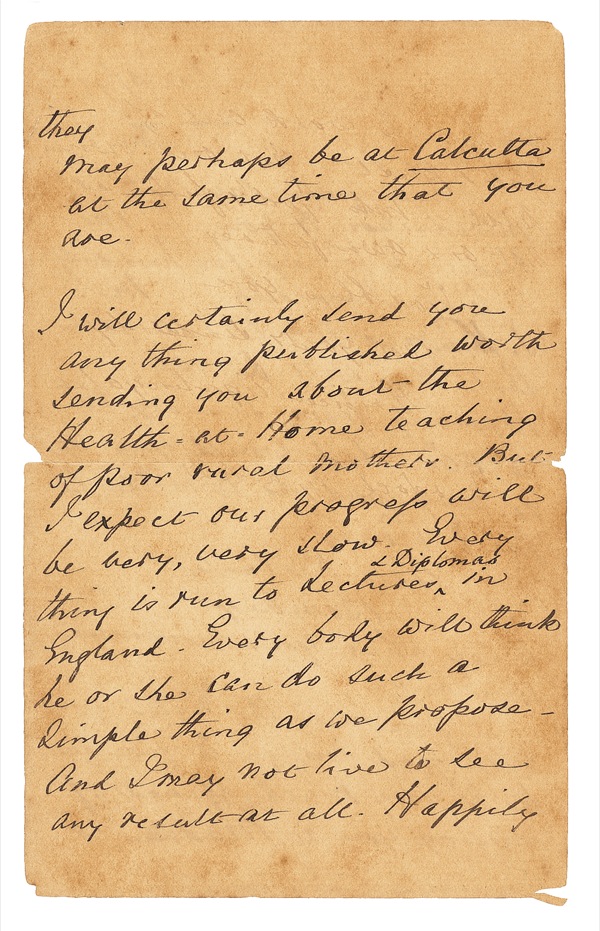 they
may perhaps be at Calcutta
at the same time that you
are.
I will certainly send you
any thing published worth
sending you about the
Health-at-Home teaching
of poor rural mothers. But
I expect our progress will
be very, very slow. Every
& Diplomas
thing is run to Lectures, in
England. Every body will think
he or she can do such a
simple thing as we propose -
And I may not live to see
any result at all. Happily